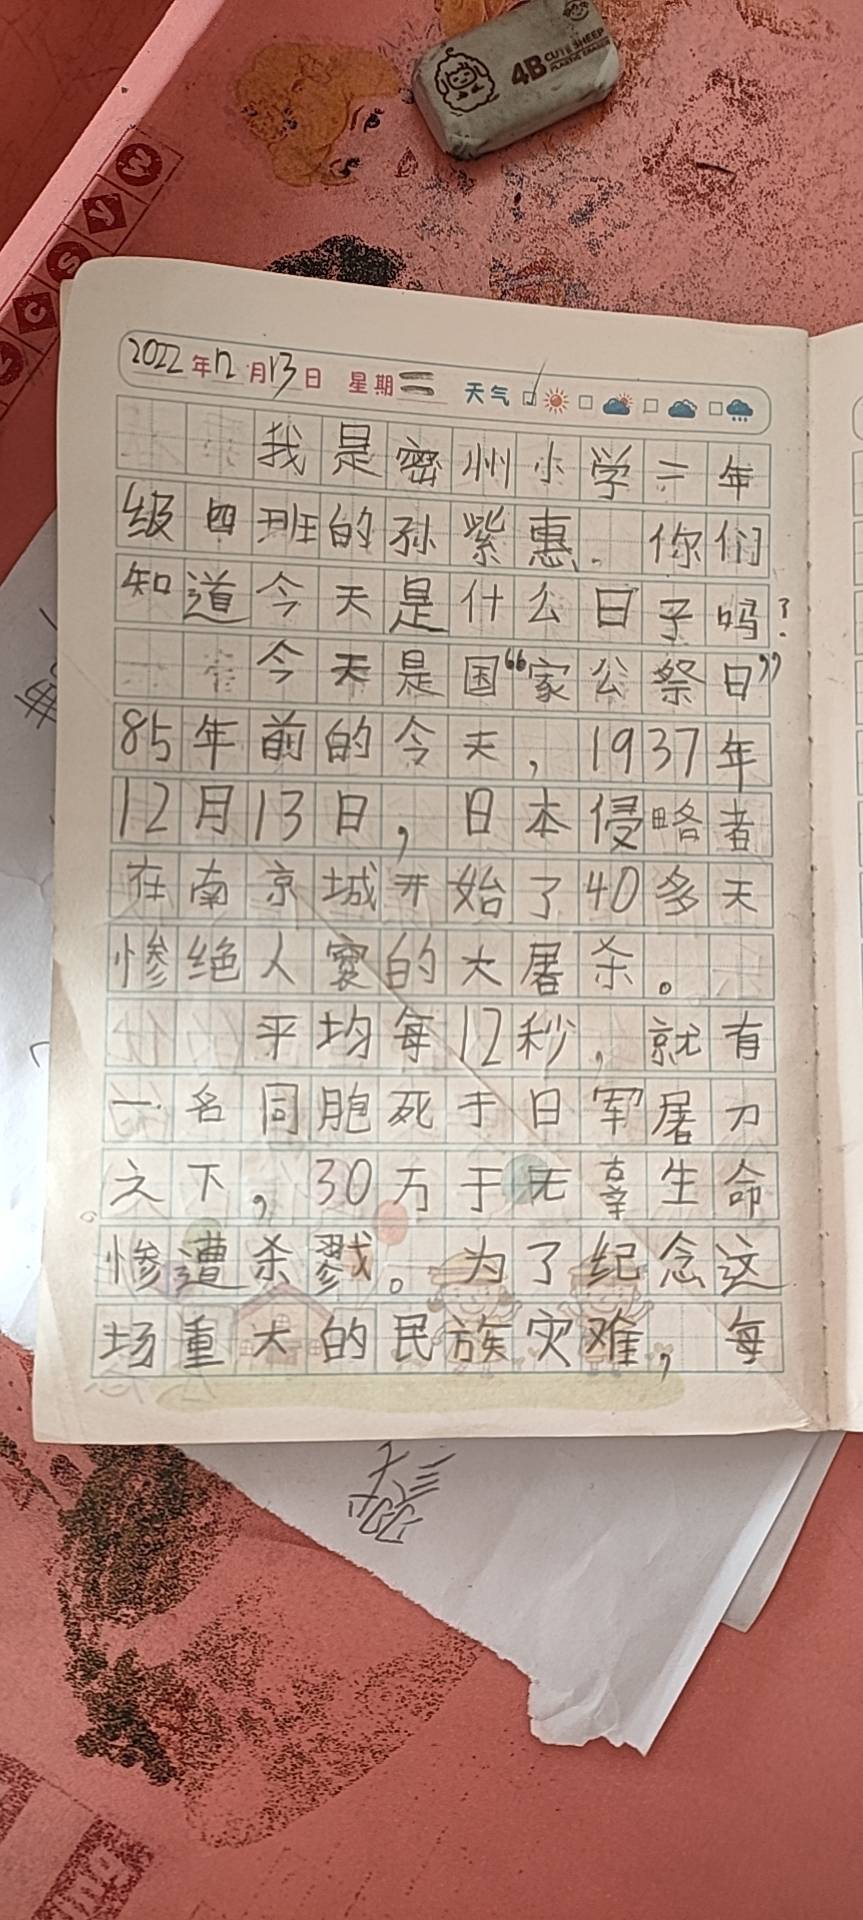 4B CUTE SHEEP
PLASTIC ERASER
2022年12月13日 星期二 天气
我是密州小学二年
级四班的孙紫惠。你们
知道今天是什么日子吗?
今天是国“家公祭日”
85年前的今天,1937年
12月13日,日本侵略者
在南京城开始了40多天
惨绝人寰的大屠杀。
平均每12秒,就有
一名同胞死于日军屠刀
之下,30万于无辜生命
惨遭杀戮。为了纪念这
场重大的民族灾难,每